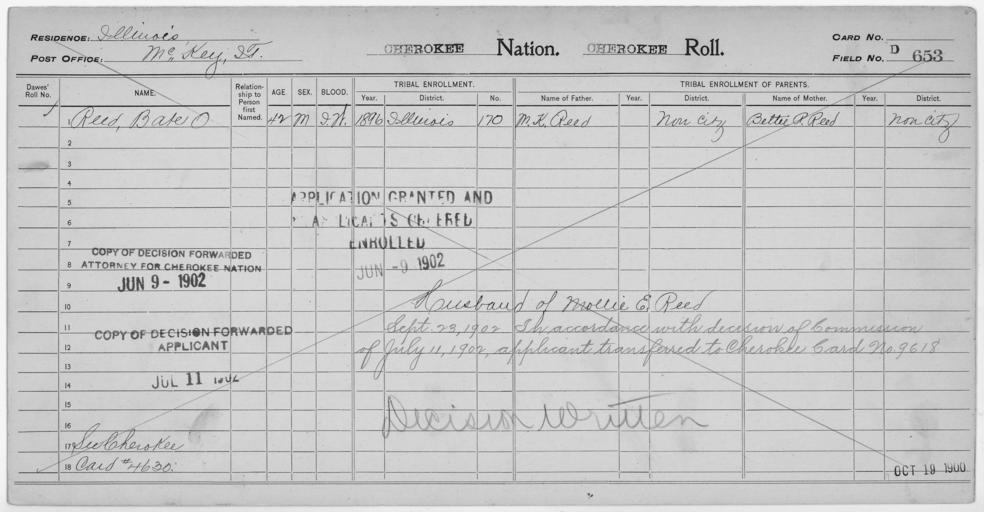 RESIDENCE: Illinois
POST OFFICE: McKey, I.T.
CHEROKEE Nation. CHEROKEE Roll.
CARD NO.
FIELD NO. D 653
Dawes' Roll No.
NAME.
Relationship to Person first Named.
AGE.
SEX.
BLOOD.
TRIBAL ENROLLMENT.
Year. District. No.
TRIBAL ENROLLMENT OF PARENTS.
Name of Father. Year. District. Name of Mother. Year. District.
1 Reed, Bate O 42 M I.W. 1896 Illinois 170 M.K. Reed Non Citz Bettie P. Reed Non Citz
2
3
4
5
6
7
8
9
10
11
12
13
14
15
16
17
18
APPLICATION GRANTED AND
APPLICANTS ORDERED
ENROLLED
JUN -9 1902
COPY OF DECISION FORWARDED
ATTORNEY FOR CHEROKEE NATION
JUN 9 - 1902
Husband of Mollie E. Reed
Sept. 23, 1902 In accordance with decision of Commission
of July 11, 1902, applicant transferred to Cherokee Card No. 9618
COPY OF DECISION FORWARDED
APPLICANT
JUL 11 1902
Decision Written
See Cherokee
Card #4630.
OCT 19 1900